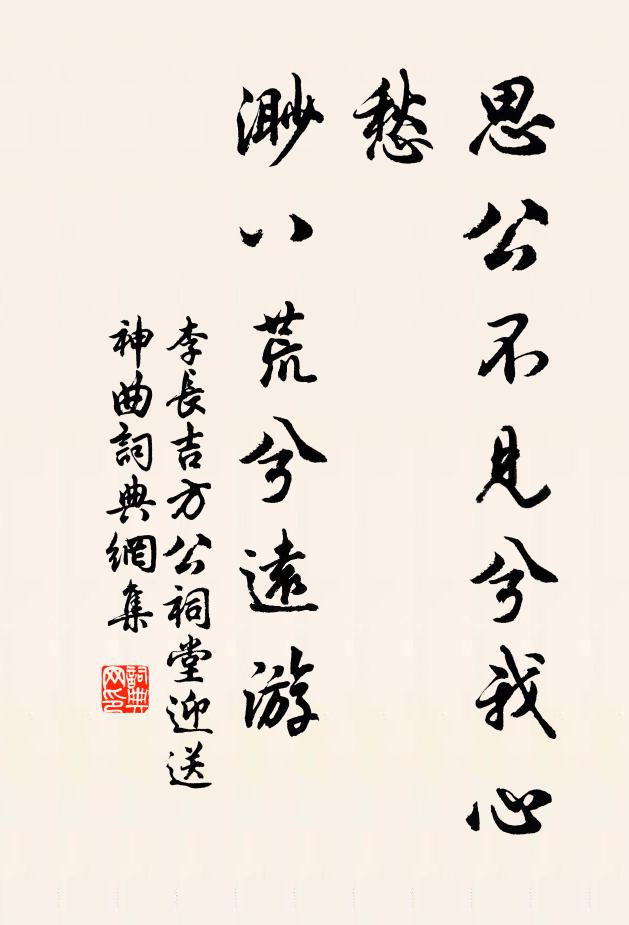 思公不見兮我心
愁
渺八荒兮遠游
李長吉方公祠堂迎送
神曲詞典網集
詞典
网印